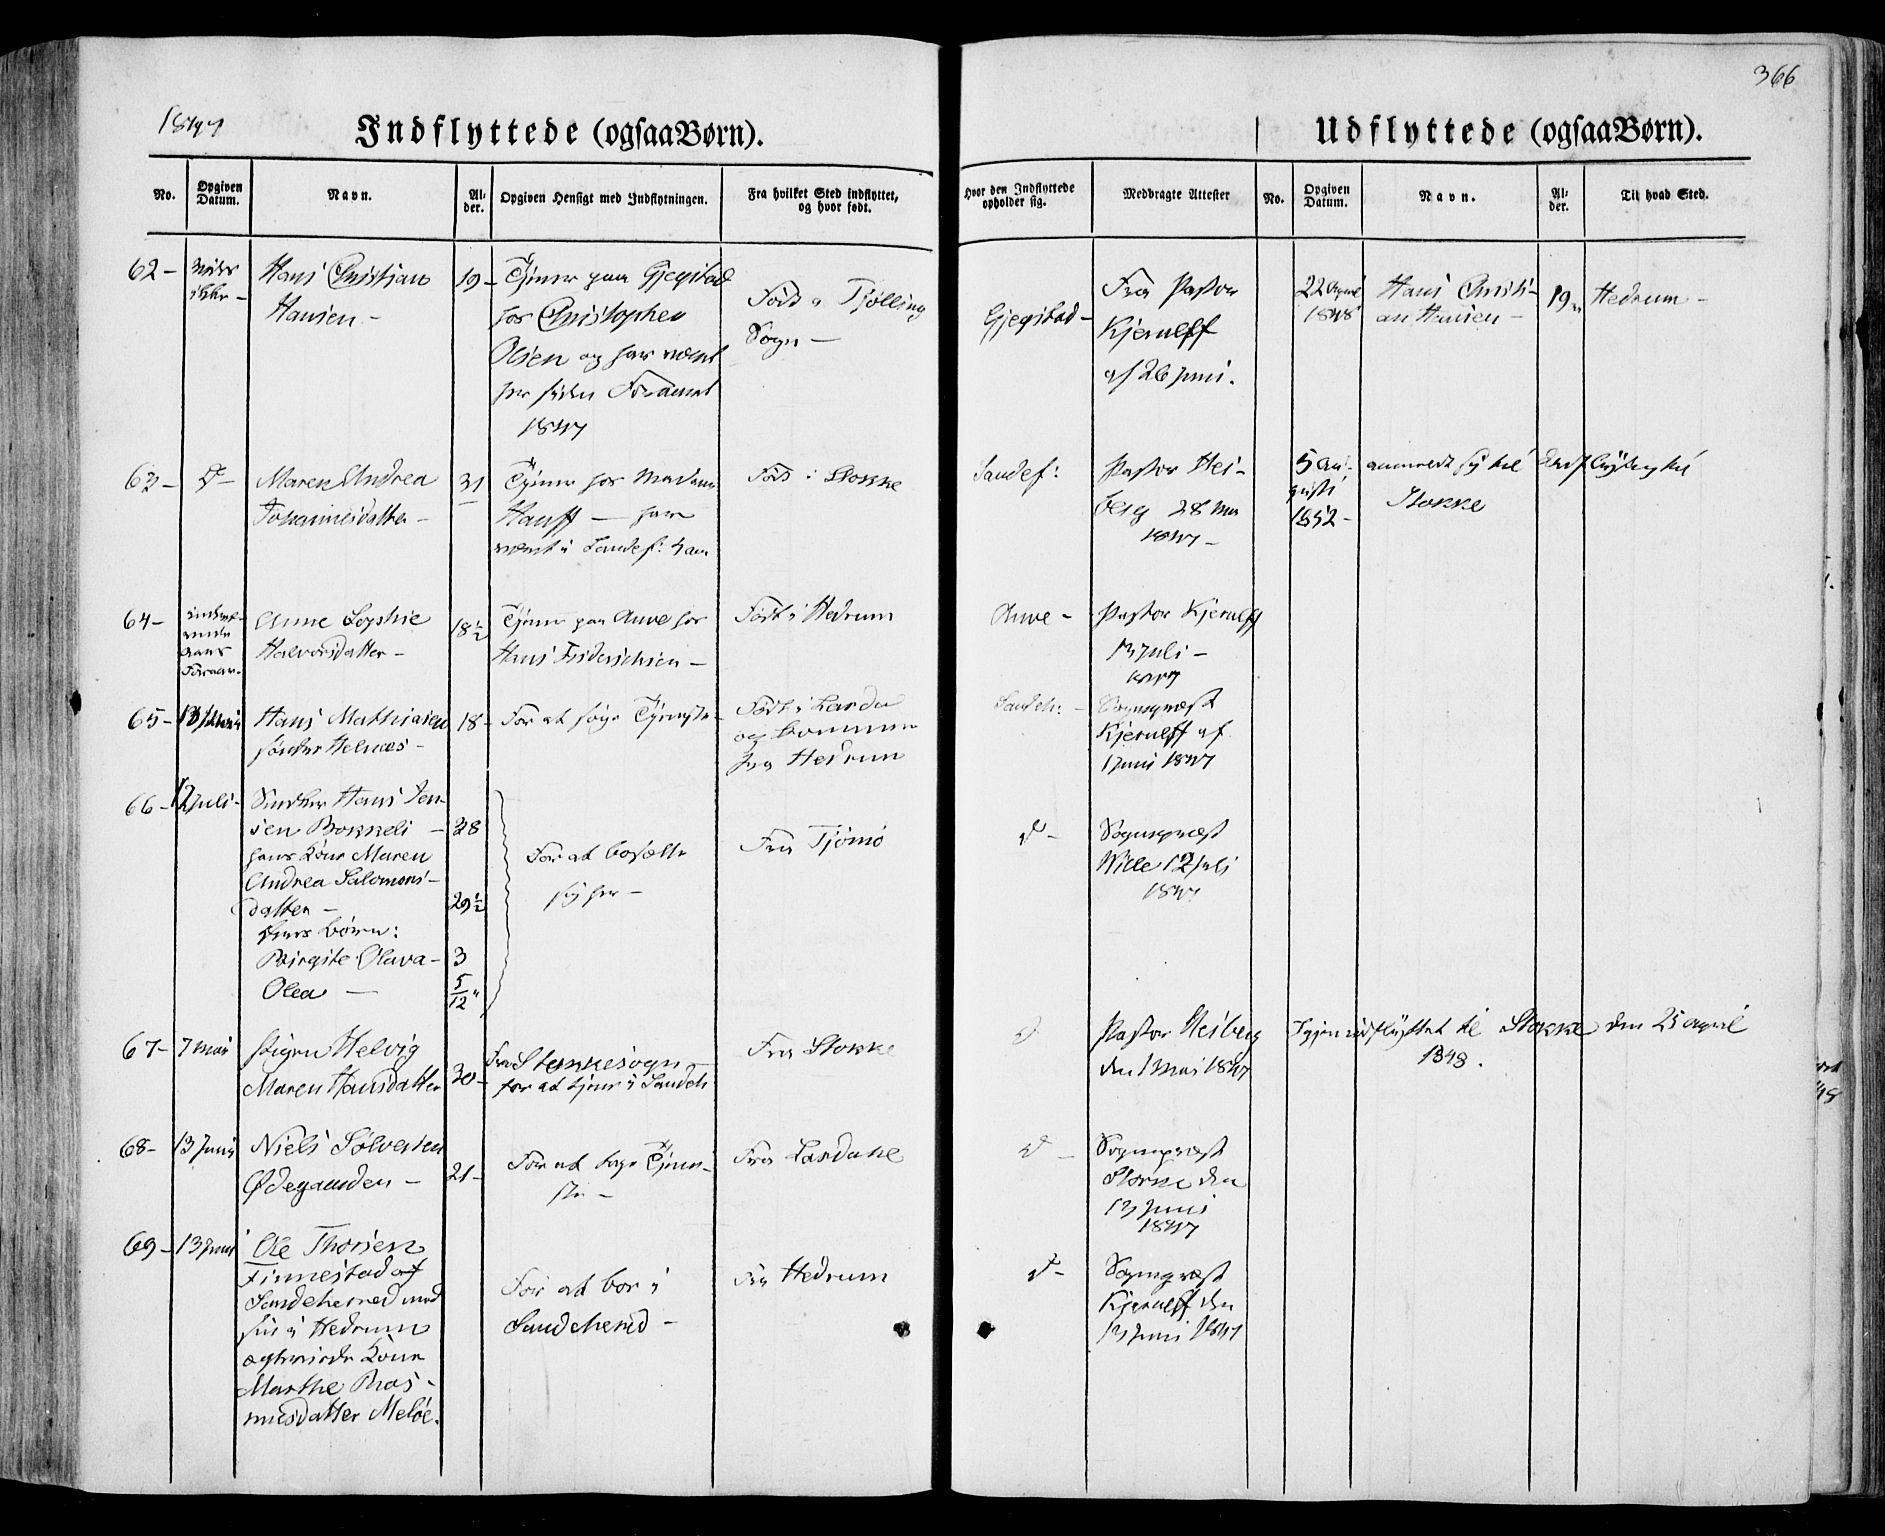 366
1847
Indflyttede (ogsaa Børn).
Udflyttede (ogsaa Børn).
No.
Opgiven Datum.
Navn.
Alder.
Opgiven Hensigt med Indflytningen.
Fra hvilket Sted indflyttet, og hvor født.
Hvor den Indflyttede opholder sig.
Medbragte Attester
No.
Opgiven Datum.
Navn.
Alder.
Til hvad Sted.
62 –
ikke –
Hans Christian
Hansen –
19 –
Tjener paa Gjegstad
hos Christopher
Olsen og har været
her siden Foraaret
1847
Født i Tjølling
Sogn –
Gjegstad –
Fra Pastor
Kjerulff
af 26 Juni.
22 April
1848
Hans Christi-
an Hansen –
19
Hedrum –
63 –
Maren Andrea
Johannesdatter –
31
Tjener hos Madame
Hauff – har
været i Sandef:
Født i Stokke
Sandef:
Pastor Hei-
berg 28 Mai
1847 –
5 Au-
gusti
1852 –
anmeldt sig til Udflytning til
Stokke
64 –
Foraar –
Anne Sophie
Halvorsdatter –
18½
Tjener paa Auve hos
Hans Friderichsen –
Født i Hedrum
Auve –
Pastor Kjerulff
13 Juli –
1847
65 –
Hans Mathiasen
Helnæs –
18 –
For at søge Tjeneste –
Født i Lardal
og kommen
fra Hedrum
Sandeh: –
Sognepræst
Kjerulff af
1 Juni 1847
66 –
12 Juli –
Snedker Hans Jen-
sen Bokkeli –
hans Kone Maren
Andrea Salomons-
datter –
Børn:
Birgite Olava –
Olea –
28
29½
3
5/12
For at bosætte
sig her –
Fra Tjømø
d –
Sognepræst
Wille 12 Juli
1847
67 –
7 Mai
Pigen Helvig
Maren Hansdatter
30 –
Fra Stokkesogn
for at tjene i Sandeh
Fra Stokke
d
Pastor Heiberg
den 1 Mai 1847
Igjen udflyttet til Stokke den 25 April
1848.
68 –
13 Juni
Niels Sølvesten
Ødegaarden –
21 –
For at søge Tjene-
ste –
Fra Lardal
d –
Sognepræst
den
13 Juni
1847
69 –
13 Juni
Ole Thorsen
Finnestad af
Sandeherred med
sin i Hedrum
ægteviede Kone
Marthe Ras-
musdatter Meløe.
For at bo i
Sandeherred –
Fra Hedrum
d –
Sognepræst
Kjerulff den
13 Juni 1847